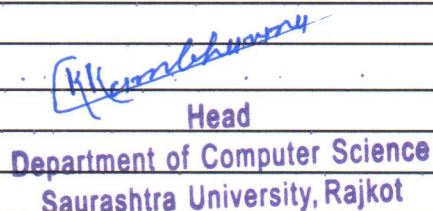 Head
Department of Computer Science
Saurashtra University, Rajkot